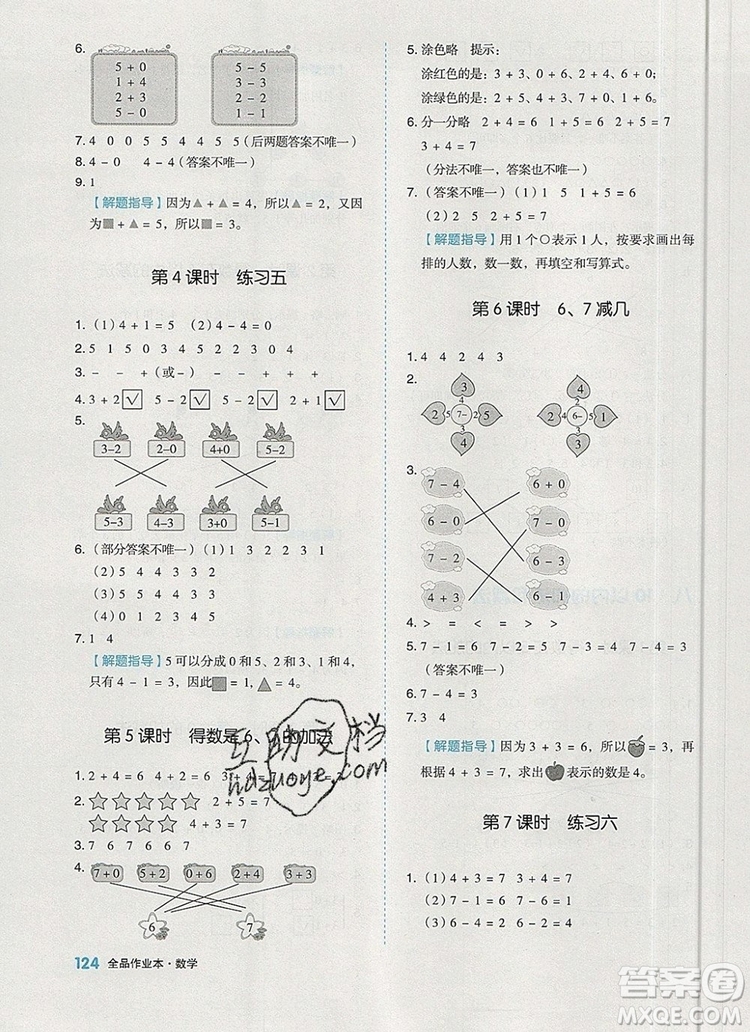 6.
5 + 0
1 + 4
2 + 3
5 - 0
5 - 5
3 - 3
2 - 2
1 - 1
7. 4 0 0 5 5 4 4 5 5（后两题答案不唯一）
8. 4-0 4-4（答案不唯一）
9. 1
【解题指导】因为▲+▲=4，所以▲=2，又因
为■+▲=5，所以■=3。
第 4 课时 练习五
1. （1）4+1=5 （2）4-4=0
2. 5 1 5 0 3 4 5 2 2 3 0 4
3. - - +（或-） - + + +
4. 3+2☑ 5-2☑ 5-2☑ 2+1☑
5.
3-2 2-0 4+0 5-2
5-3 4-3 3+0 5-1
6. （部分答案不唯一）（1）1 2 2 3 1
（2）5 4 4 3 3 2
（3）5 5 5 5 5 5
（4）0 1 2 3 4 5
7. 1 4
【解题指导】5可以分成0和5、2和3、1和4，
只有4-1=3，因此■=1，▲=4。
第 5 课时 得数是 6、7的加法
1. 2+4=6
2. ☆☆☆☆☆ 2+5=7
☆☆☆☆ 4+3=7
3. 7 6 7 6 6 7
4.
7+0 5+2 0+6 2+4 3+3
6 7
124 全品作业本·数学
5. 涂色略 提示：
涂红色的是：3+3、0+6、4+2、6+0；
涂绿色的是：2+5、4+3、7+0、1+6。
6. 分一分略 2+4=6 1+5=6 2+5=7
3+4=7
（分法不唯一，答案也不唯一）
7. （答案不唯一）（1）1 5 1+5=6
（2）2 5 2+5=7
【解题指导】用1个○表示1人，按要求画出每
排的人数，数一数，再填空和写算式。
第 6 课时 6、7减几
1. 4 4 2 4 3
2.
3
4
2 5 7- 2 5
3
4
4
2
2 4 6- 5 1
3
3
3.
7 - 4 6 + 0
6 - 0 7 - 0
7 - 2 6 - 3
4 + 3 7 - 2
4. > = < = > >
5. 7-1=6 7-2=5 7-3=4 7-4=3
（答案不唯一）
6. 7-3=4
7. 3 4
【解题指导】因为3+3=6，所以表示3，再
根据4+3=7，求出表示的数是4。
第 7 课时 练习六
1. （1）4+3=7 3+4=7
（2）7-1=6 7-6=1
（3）6-4=2 6-2=4
互助文档
hdzuoye.com
答案圈
MXQE.COM